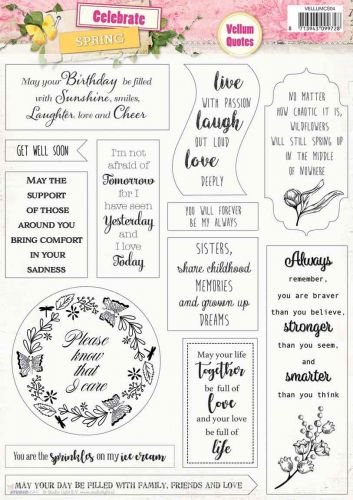 Celebrate
SPRING
Vellum
Quotes
VELLUMCS04
8 713943 099728
May your Birthday be filled
with Sunshine, smiles,
Laughter, love and Cheer
live
WITH PASSION
laugh
OUT LOUD
love
DEEPLY
NO MATTER
HOW CHAOTIC IT IS,
WILDFLOWERS
WILL STILL SPRING UP
IN THE MIDDLE
OF NOWHERE
GET WELL SOON
I'm not
afraid of
Tomorrow
for I
have seen
Yesterday
and I
love
Today
MAY THE
SUPPORT
OF THOSE
AROUND YOU
BRING COMFORT
IN YOUR
SADNESS
YOU WILL FOREVER
BE MY ALWAYS
SISTERS,
share childhood
MEMORIES
and grown up
DREAMS
Always
remember,
you are braver
than you believe,
stronger
than you seem,
and
smarter
than you think
Please
know that
I care
May your life
together
be full of
love
and your love
be full of
life
You are the sprinkles on my ice cream
MAY YOUR DAY BE FILLED WITH FAMILY, FRIENDS AND LOVE